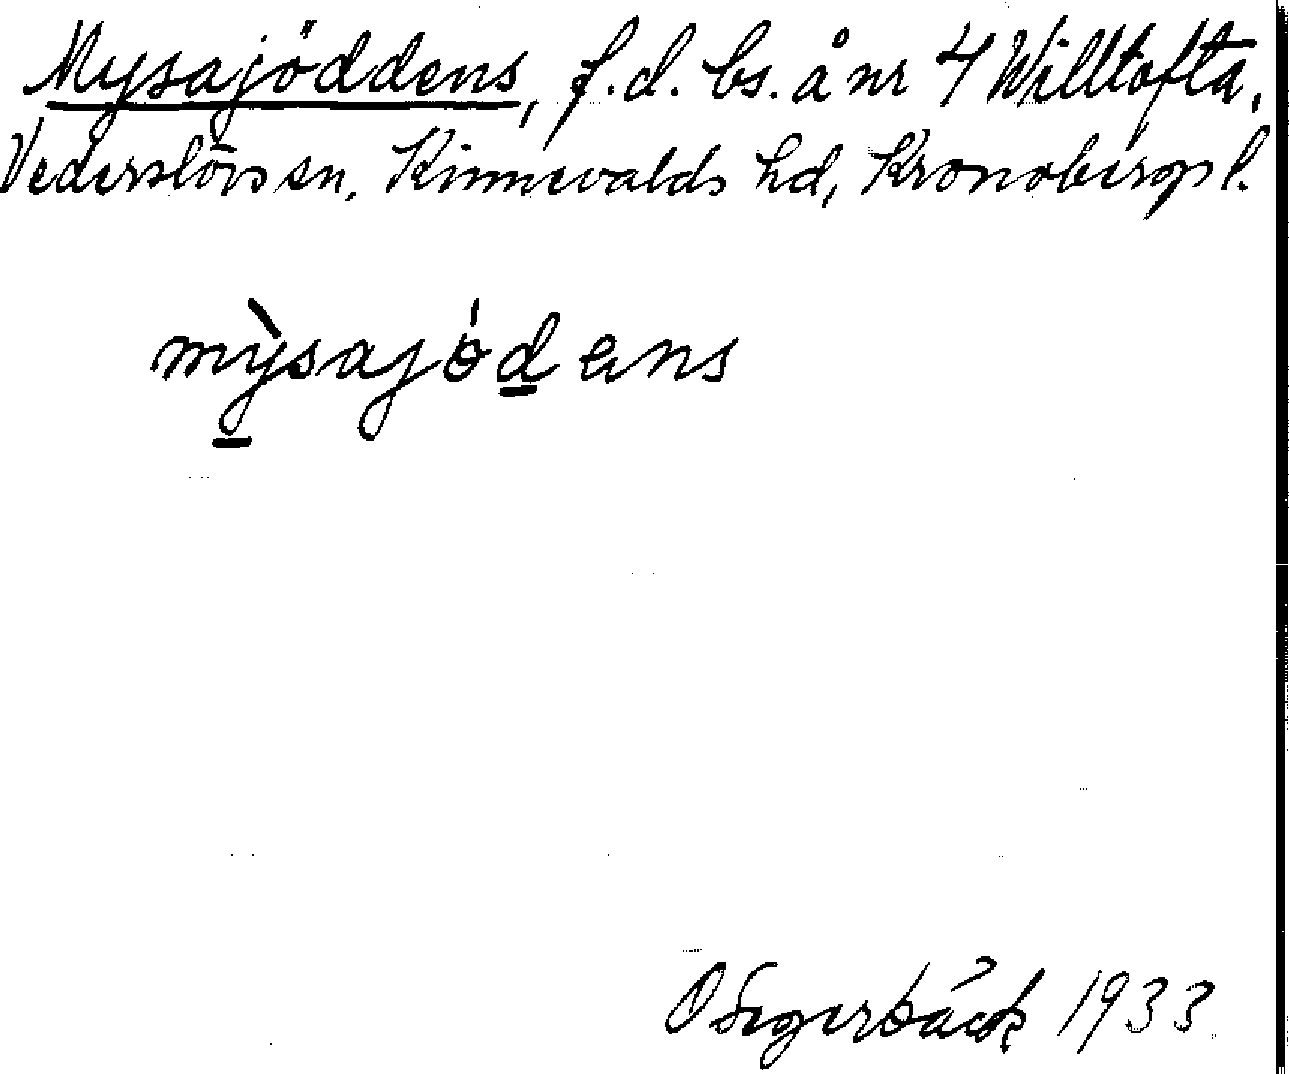 Mysajöddens, f.d. bs. å nr 4 Willtofta,
Vederslövs sn, Kinnevalds hd, Kronobergs l.
mỳsajödens
O Segerbäck 1933